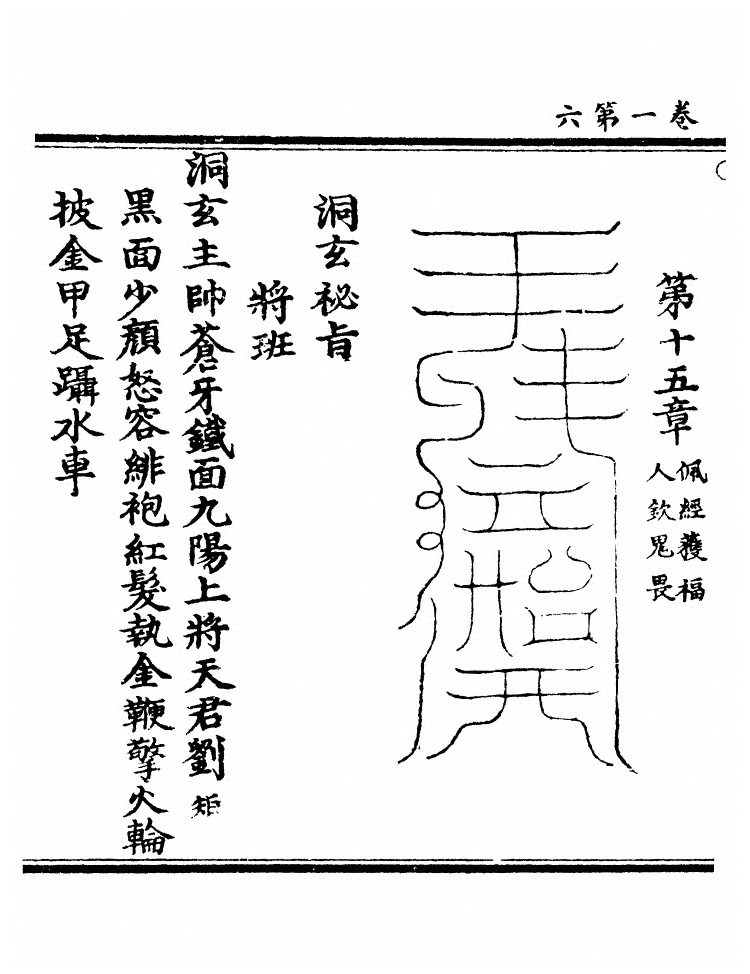 六第一卷
第十五章
佩經獲福
人欽鬼畏
洞玄祕旨
將班
洞玄主帥蒼牙鐵面九陽上將天君劉矩
黑面少顏怒容緋袍紅髮執金鞭擎火輪
披金甲足躡水車